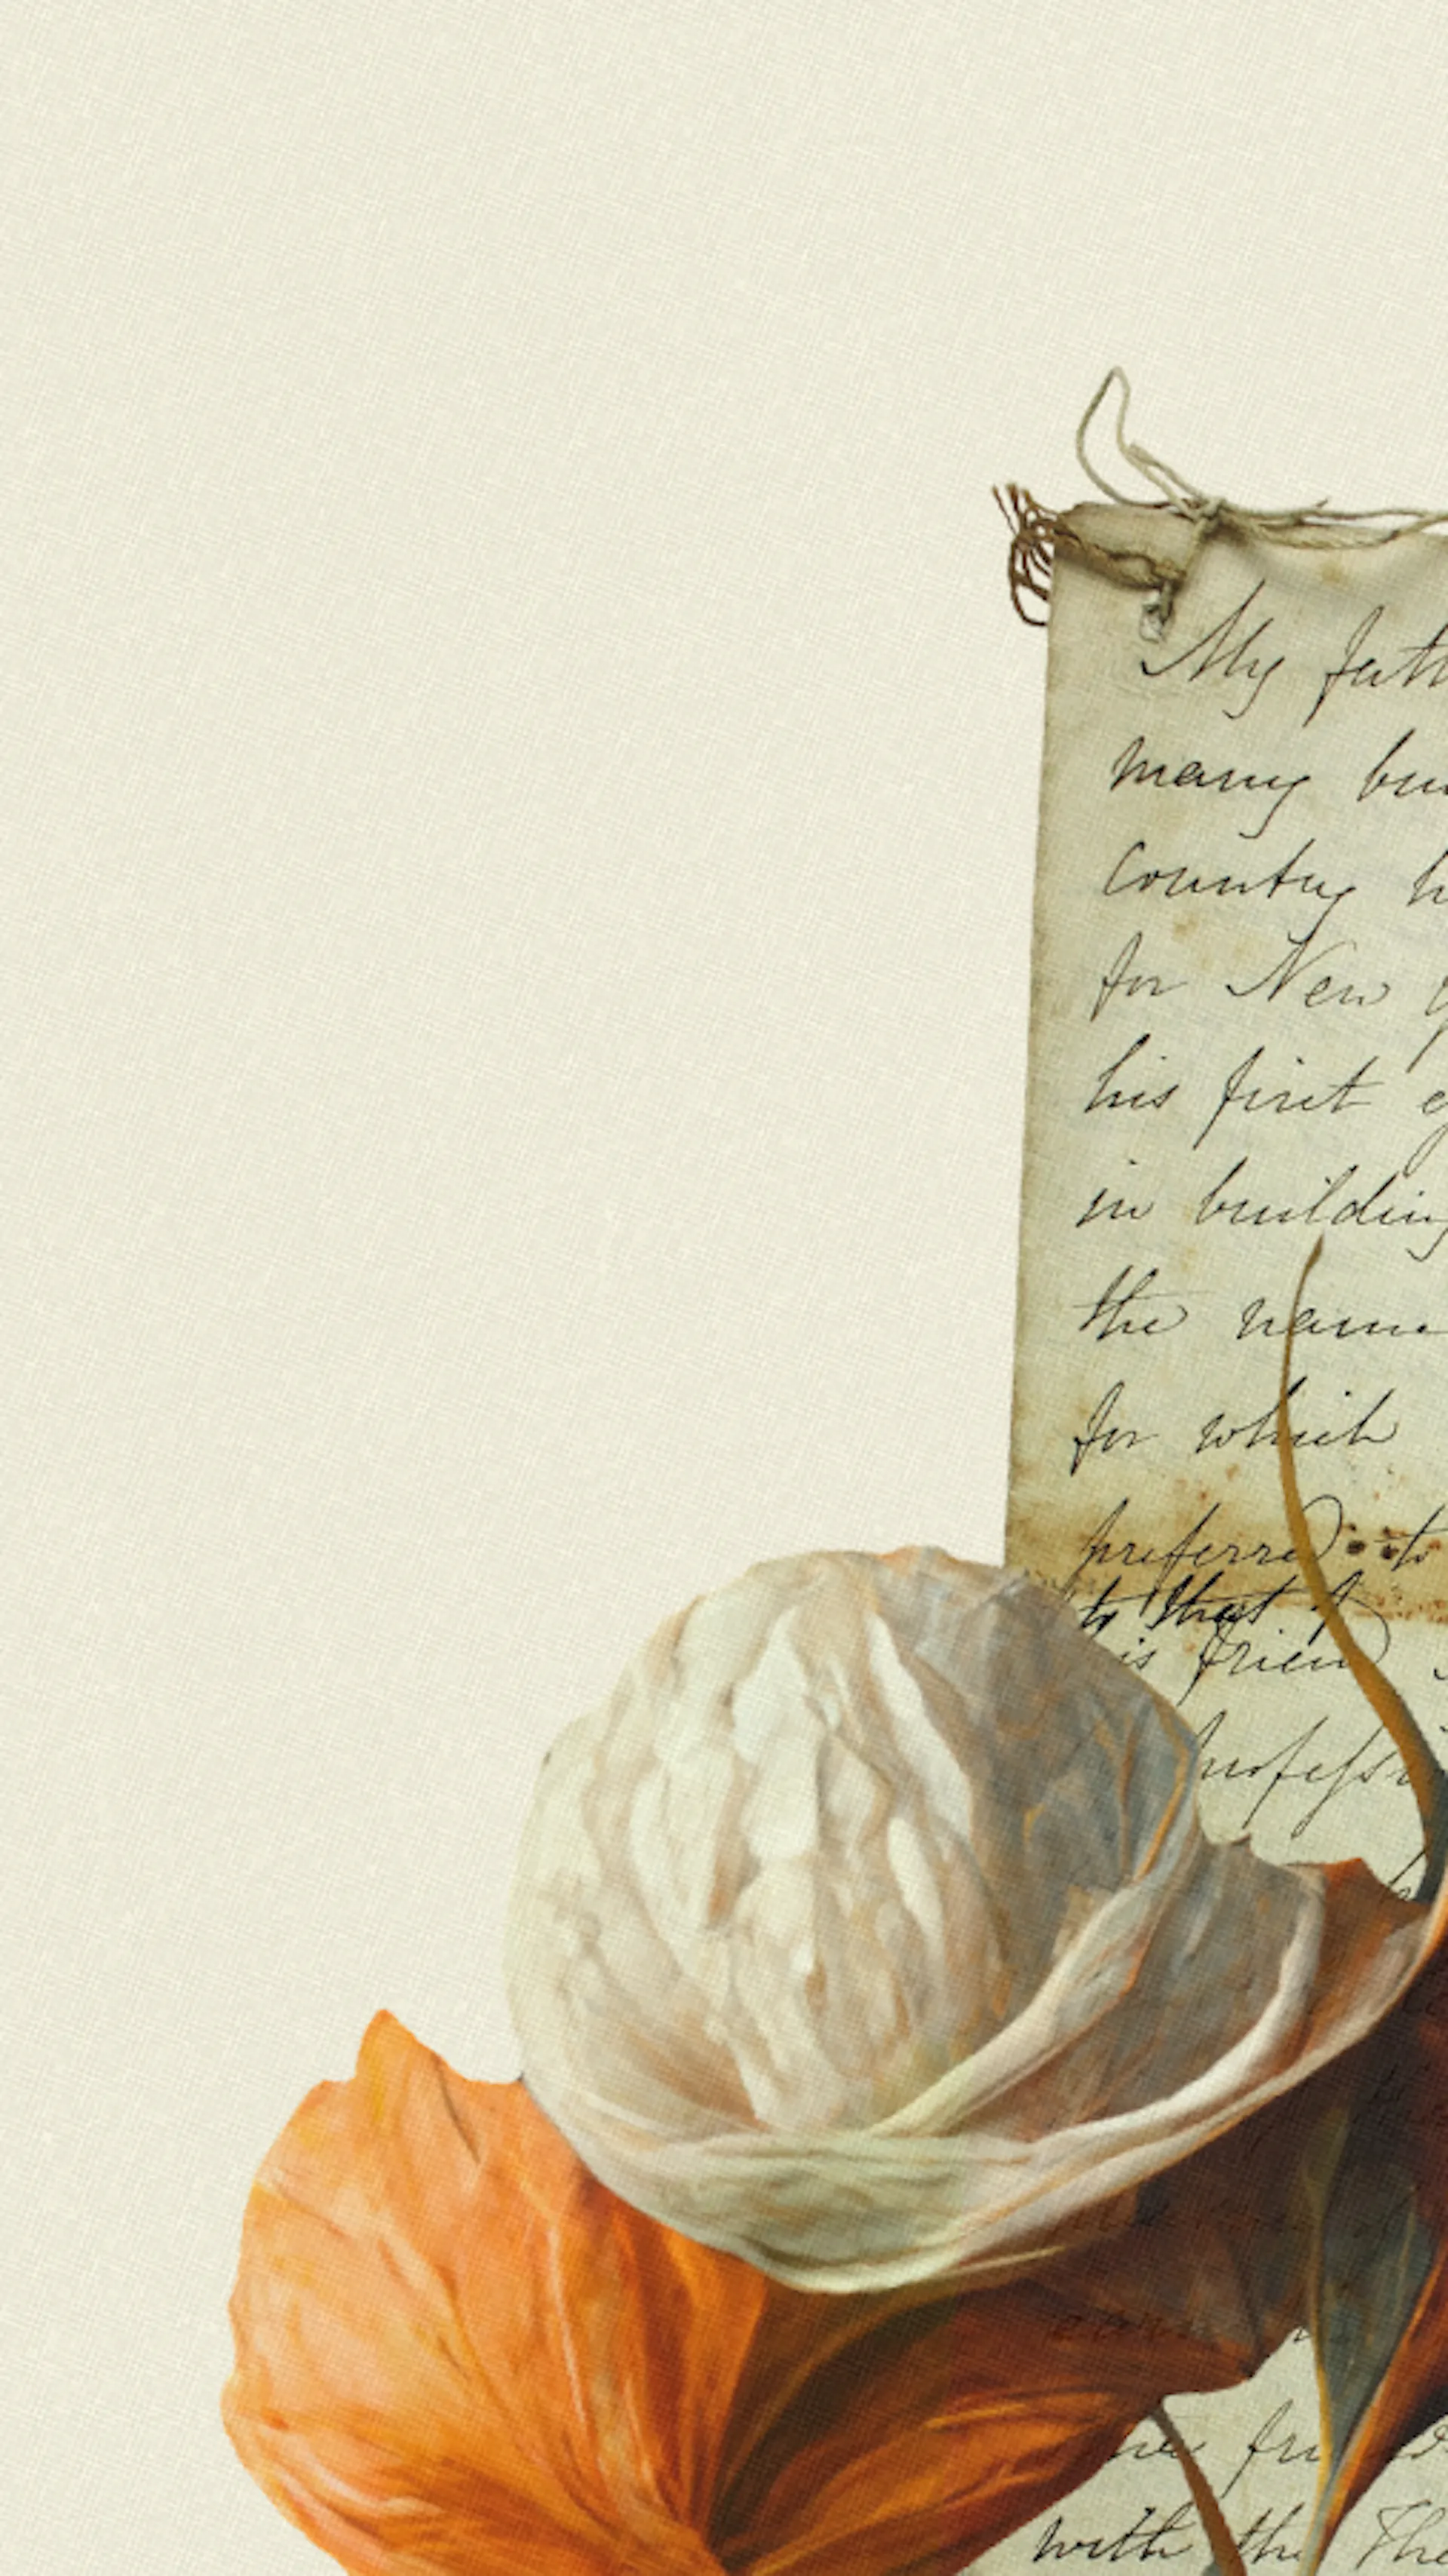 My fath
many bu
Country h
for New Y
his first e
in building
the name
for which
preferred to
to that of
his friend
profess
the fri
with the The